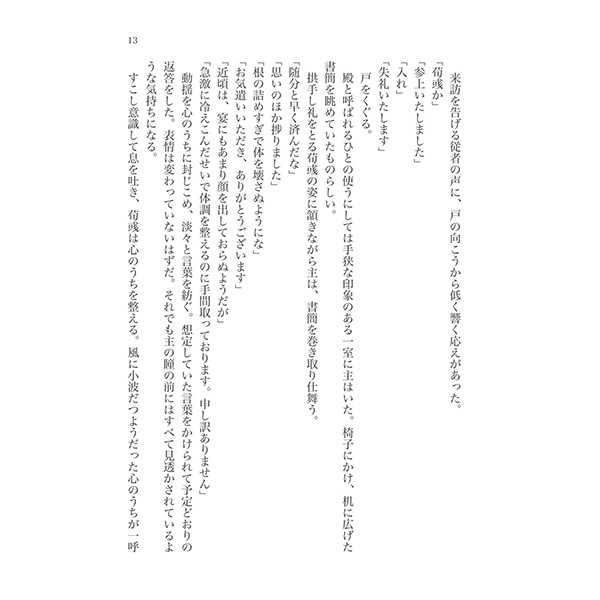 13
来訪を告げる従者の声に、戸の向こうから低く響く応えがあった。
「荀彧か」
「参上いたしました」
「入れ」
「失礼いたします」
戸をくぐる。
殿と呼ばれるひとの使うにしては手狭な印象のある一室に主はいた。椅子にかけ、机に広げた
書簡を眺めていたものらしい。
拱手し礼をとる荀彧の姿に頷きながら主は、書簡を巻き取り仕舞う。
「随分と早く済んだな」
「思いのほか捗りました」
「根の詰めすぎで体を壊さぬようにな」
「お気遣いいただき、ありがとうございます」
「近頃は、宴にもあまり顔を出しておらぬようだが」
「急激に冷えこんだせいで体調を整えるのに手間取っております。申し訳ありません」
動揺を心のうちに封じこめ、淡々と言葉を紡ぐ。想定していた言葉をかけられて予定どおりの
返答をした。表情は変わっていないはずだ。それでも主の瞳の前にはすべて見透かされているよ
うな気持ちになる。
すこし意識して息を吐き、荀彧は心のうちを整える。風に小波だつようだった心のうちが一呼